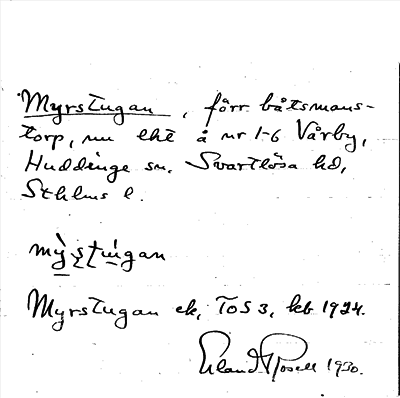 Myrstugan, förr båtsmans-
torp, nu lht å nr 1-6 Vårby,
Huddinge sn. Svartlösa hd,
Sthlms l.
Myrstugan ek, TOS 3, kb 1924.
Erland Rosell 1930.